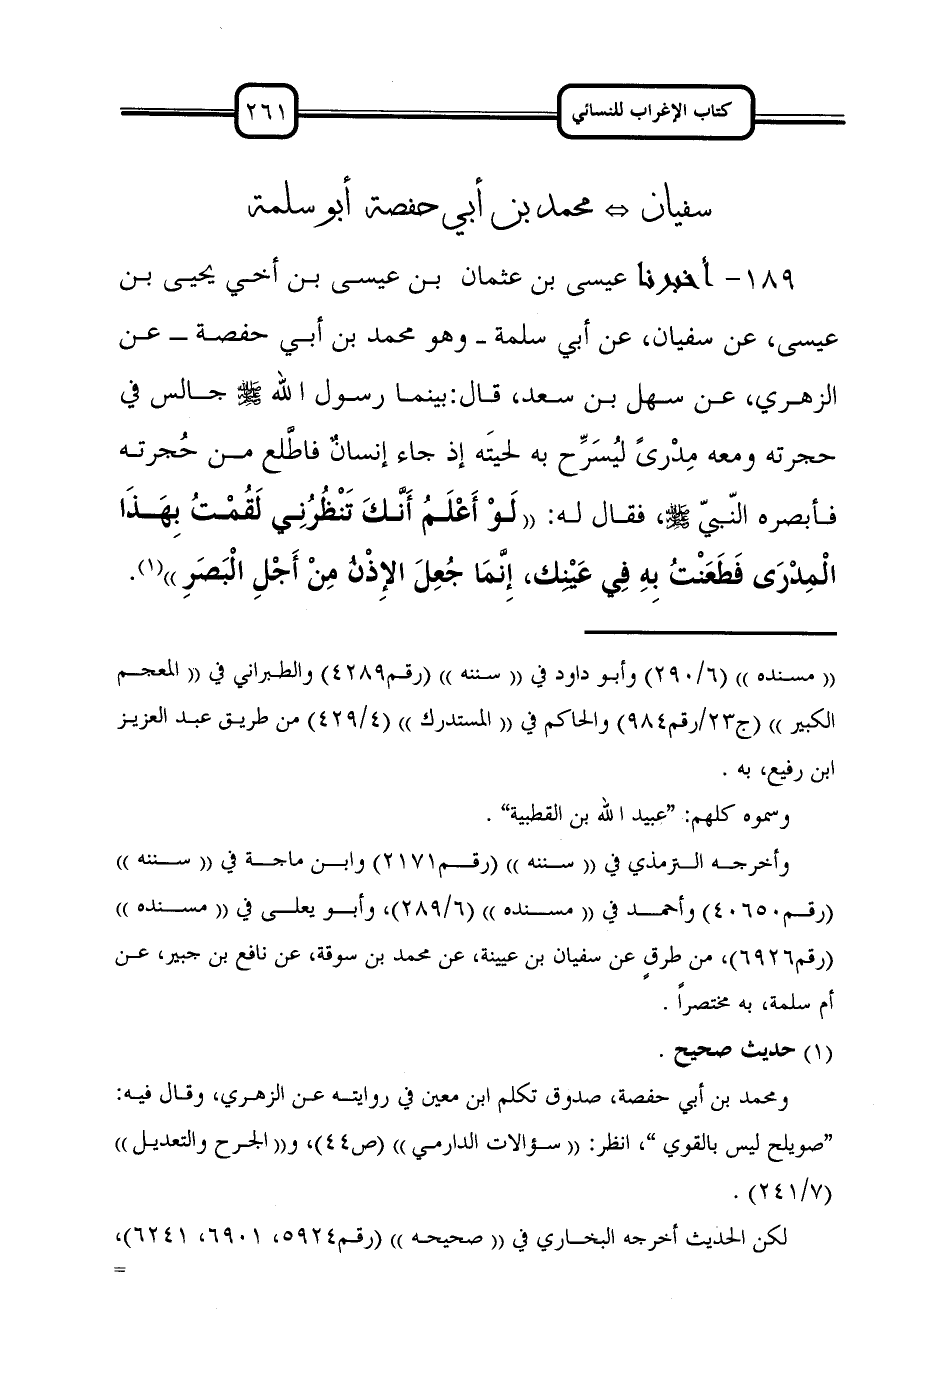 كتاب الإغراب للنسائي
٢٦١
سفيان ⇔ محمد بن أبي حفصة أبو سلمة
١٨٩- أخبرنا عيسى بن عثمان بن عيسى بن أخي يحيى بن
عيسى، عن سفيان، عن أبي سلمة ـ وهو محمد بن أبي حفصة ـ عن
الزهري، عن سهل بن سعد، قال:بينما رسول الله ﷺ جالس في
حجرته ومعه مِدْرىً ليُسَرِّح به لحيتَه إذ جاء إنسانٌ فاطَّلع من حُجرته
فأبصره النّبيّ ﷺ، فقال له: (( لَوْ أَعْلَمُ أَنَّكَ تَنْظُرُنِي لَقُمْتُ بِهَذَا
الْمِدْرَى فَطَعَنْتُ بِهِ فِي عَيْنِكَ، إِنَّمَا جُعِلَ الإِذْنُ مِنْ أَجْلِ الْبَصَرِ ))(١).
(( مسنده )) (٢٩٠/٦) وأبو داود في (( سننه )) (رقم٤٢٨٩) والطبراني في (( المعجم
الكبير )) (ج٢٣/رقم٩٨٤) والحاكم في (( المستدرك )) (٤٢٩/٤) من طريق عبد العزيز
ابن رفيع، به .
وسموه كلهم: ”عبيد الله بن القطبية“ .
وأخرجه الترمذي في (( سننه )) (رقم٢١٧١) وابن ماجة في (( سننه ))
(رقم٤٠٦٥٠) وأحمد في (( مسنده )) (٢٨٩/٦)، وأبو يعلى في (( مسنده ))
(رقم٦٩٢٦)، من طرقٍ عن سفيان بن عيينة، عن محمد بن سوقة، عن نافع بن جبير، عن
أم سلمة، به مختصراً .
(١) حديث صحيح .
ومحمد بن أبي حفصة، صدوق تكلم ابن معين في روايته عن الزهري، وقال فيه:
”صويلح ليس بالقوي “، انظر: (( سؤالات الدارمي )) (ص٤٤)، و(( الجرح والتعديل ))
(٢٤١/٧) .
لكن الحديث أخرجه البخاري في (( صحيحه )) (رقم٥٩٢٤، ٦٩٠١، ٦٢٤١)،
=